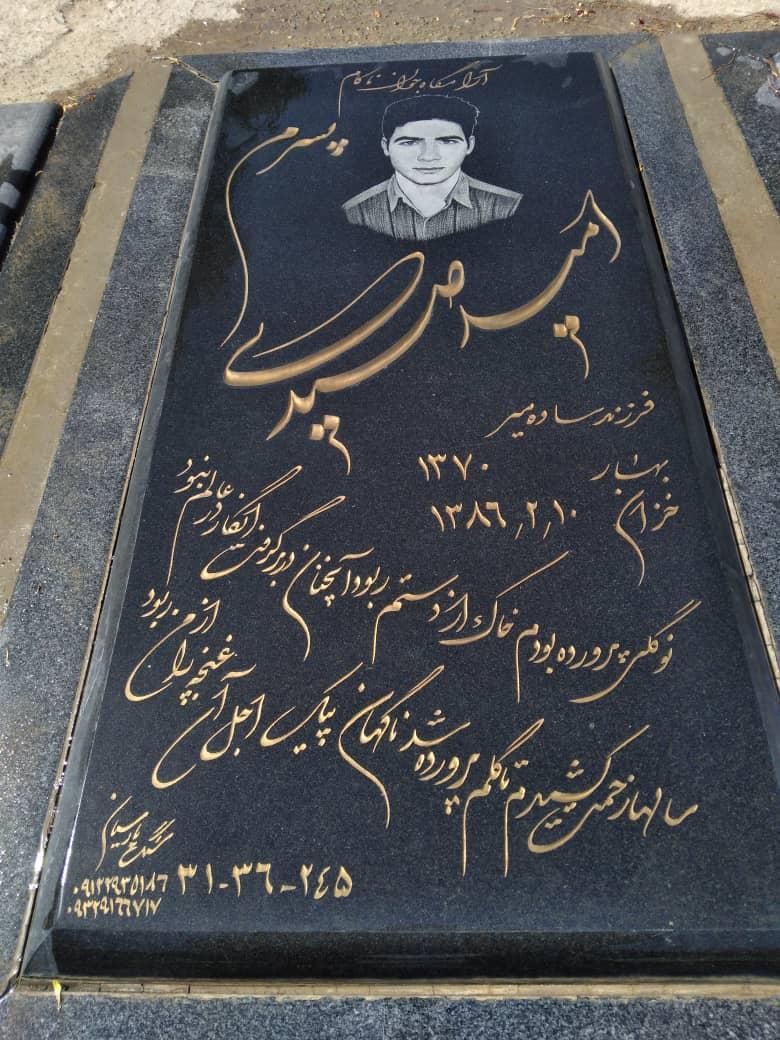 آرامگاه جوان ناکام
پسرم
امید صیدی
فرزند ساده میر
بهار ۱۳۷۰
خزان ۱۳۸۶,۲,۱۰
نوگلی پرورده بودم خاک از دستم ربود آنچنان در بر گرفت انگار در عالم نبود
سالها زحمت کشیدم تا گلم پرورده شد ناگهان پیک اجل آن غنچه را از من ربود
۳۱-۳۶-۲۴۵
سنگ پارسیان
۰۹۱۲۲۹۳۵۱۸۶
۰۹۳۲۹۱۶۶۷۱۷